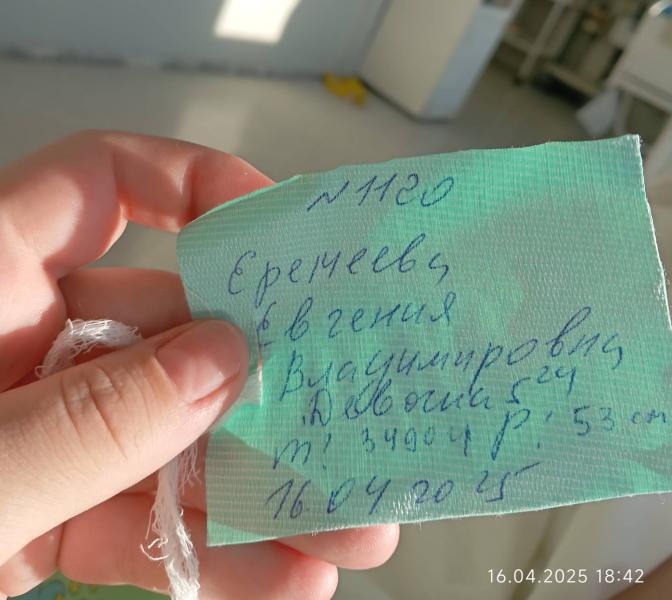 N1120
Еремеева
Евгения
Владимировна
Девочка 5²⁴
m: 3490 ч р: 53 см
16.04 2025
16.04.2025 18:42